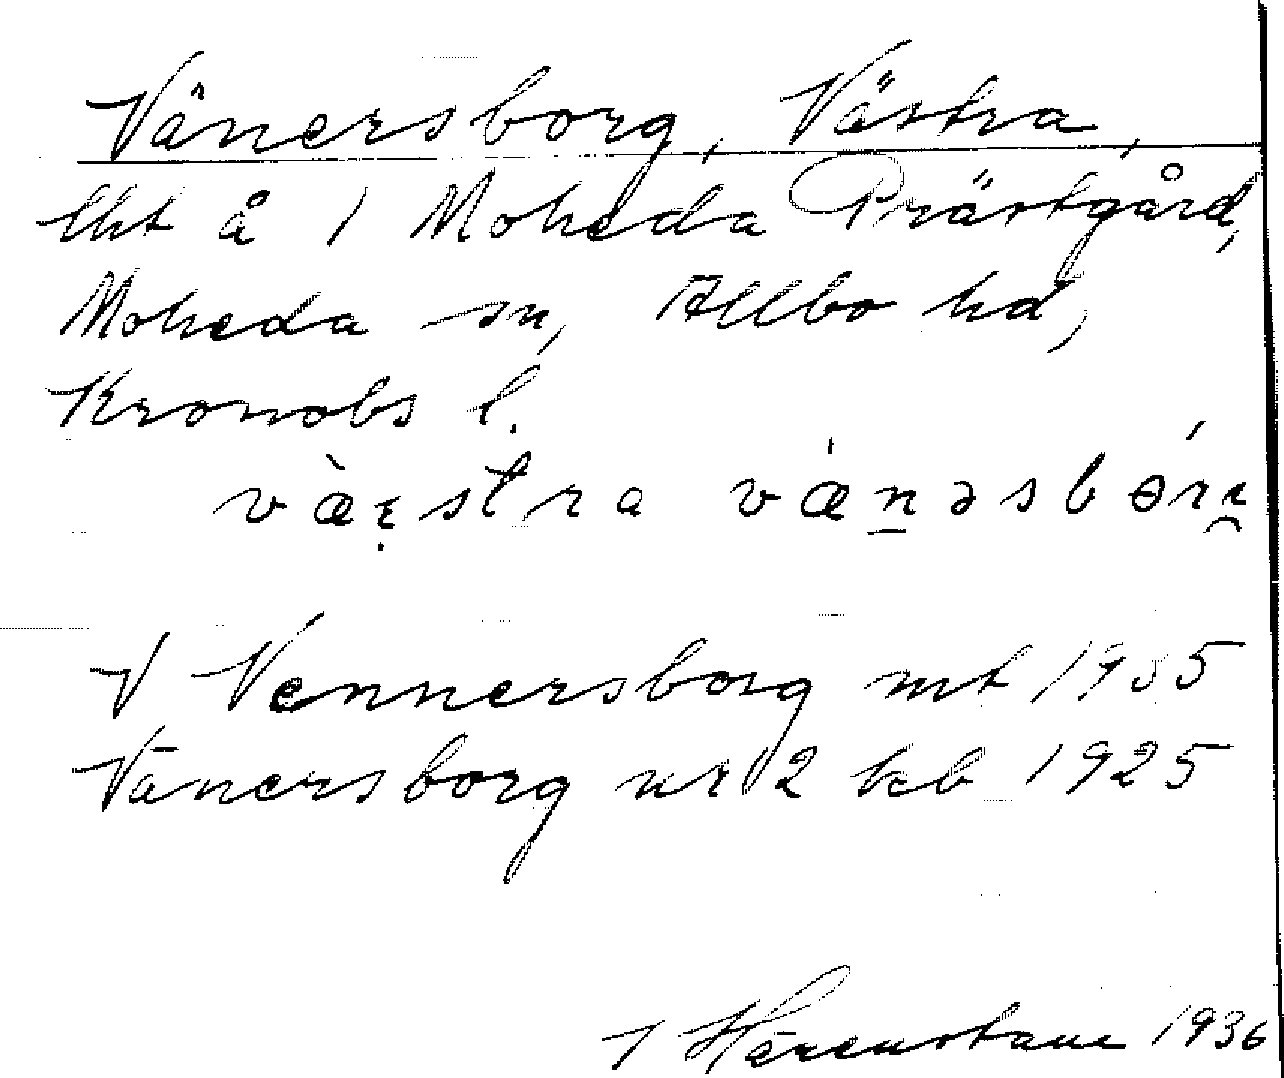 Vänersborg, Västra,
lht å 1 Moheda Prästgård,
Moheda sn, Allbo hd,
Kronobs l.
västra
V Vennersborg mt 1935
Vänersborg nr 2 kb 1925
1936